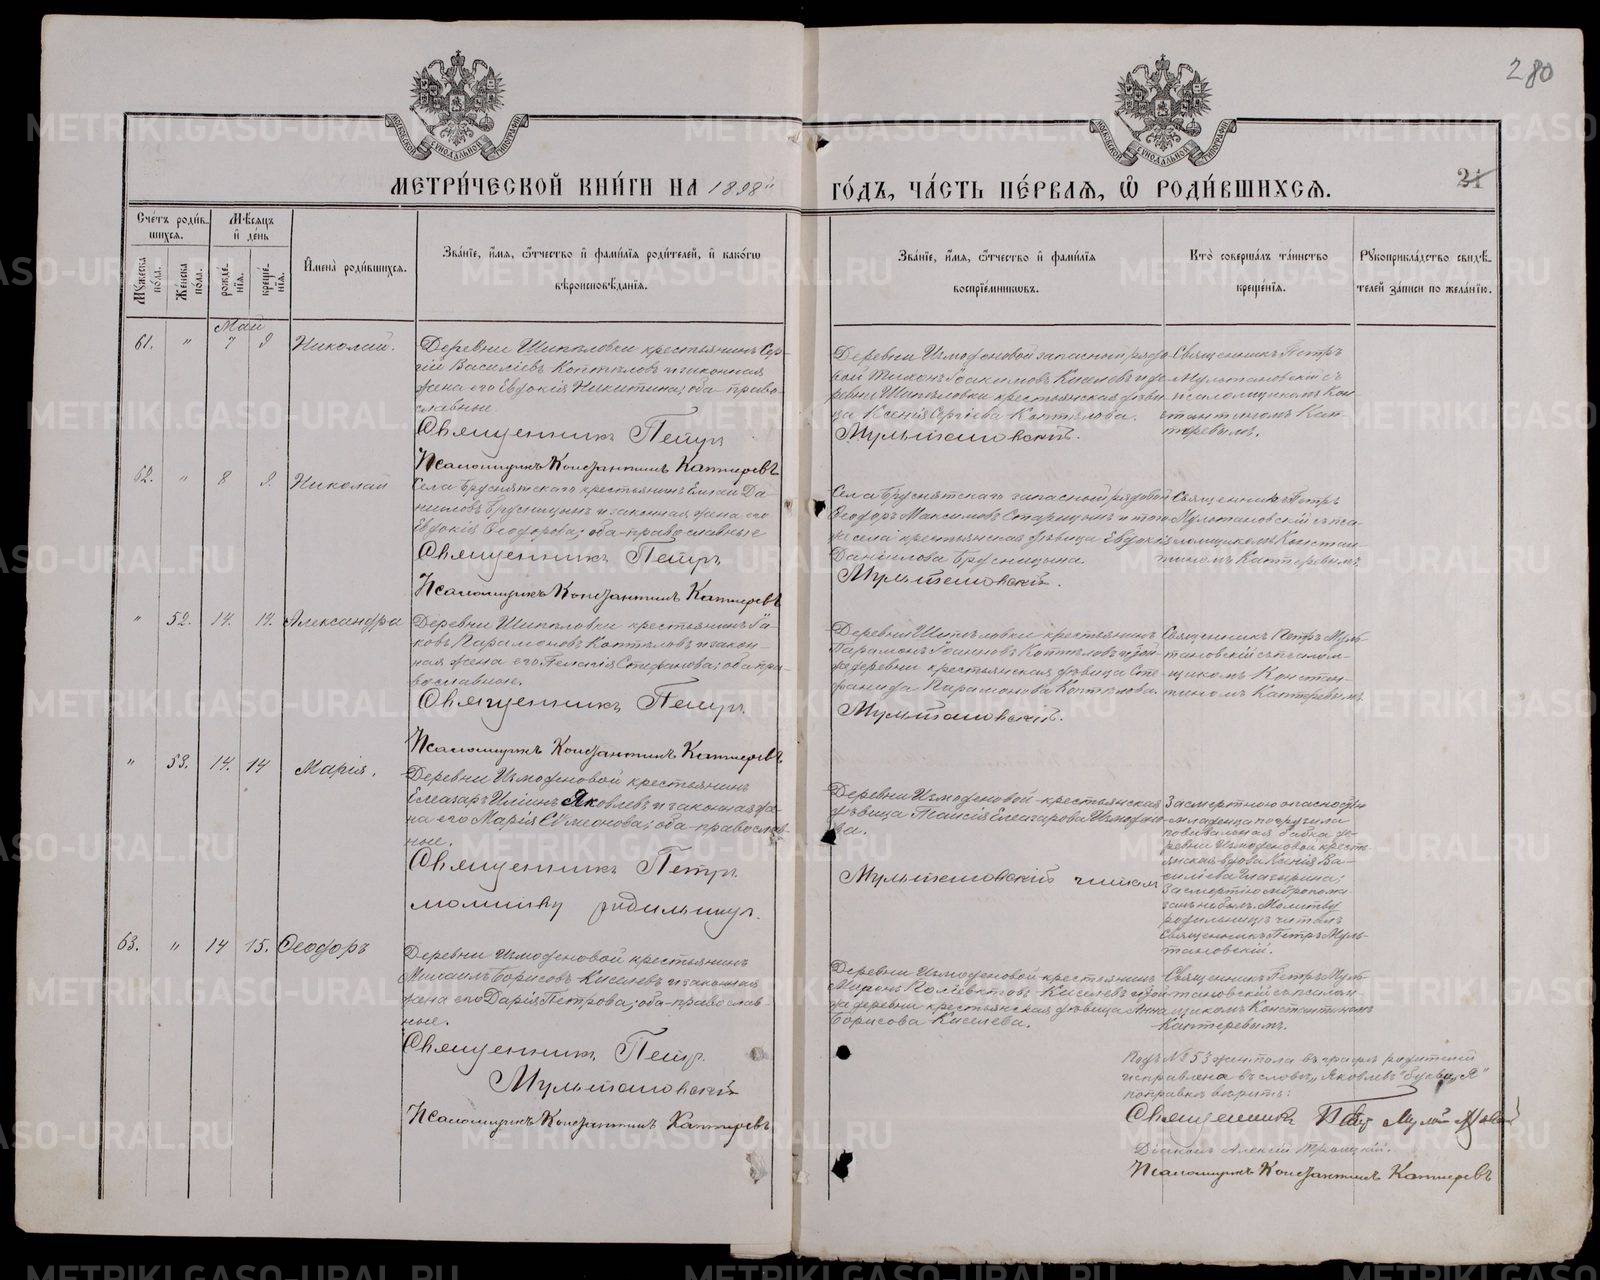 280
МОСКОВСКОЙ СѴНОДАЛЬНОЙ ТИПОГРАФІИ
МОСКОВСКОЙ СѴНОДАЛЬНОЙ ТИПОГРАФІИ
МЕТРИ́ЧЕСКОЙ КНИ́ГИ НА 1898й
ГО́ДЪ, ЧА́СТЬ ПЕ́РВАѦ, Ѽ РОДИ́ВШИХСѦ.
Сче́тъ роди́в-
шихсѧ.
Мꙋ́жеска по́ла.
Же́нска по́ла.
Мѣ́сѧцъ и҆ де́нь
рожде́нїѧ.
креще́нїѧ.
И҆мена̀ роди́вшихсѧ.
Зва́нїе, и҆́мѧ, ѻ҆́тчество и҆ фами́лїѧ роди́телей, и҆ како́гѡ
вѣроисповѣ́данїѧ.
Зва́нїе, и҆́мѧ, ѻ҆́тчество и҆ фами́лїѧ
воспрїе́мникѡвъ.
Кто̀ соверша́лъ та́инство
креще́нїѧ.
Рꙋкоприкла́дство свидѣ́-
телей за́писи по жела́нїю.
Май
61. " 7 9 Николай.
Деревни Шипѣловки крестьянинъ Сер-
гій Василіевъ Коптѣловъ и законная
жена его Евдокія Никитина; оба право-
славные
Священникъ Петръ
Псаломщикъ Константинъ Каптеревъ
Деревни Измоденовой запасный рядо-
вой Тихонъ Іоакимовъ Киселевъ и де-
ревни Шипѣловки крестьянская дѣви-
ца Ксенія Сергіева Коптѣлова.
Мультановскій.
Священникъ Петръ
Мультановскій съ
псаломщикомъ Кон-
стантиномъ Кап-
теревымъ.
62. " 8 9. Николай
Села Бруснятскаго крестьянинъ Да-
ниловъ Брусницынъ и законная жена его
Евдокія Ѳеодорова; оба православные
Священникъ Петръ
Псаломщикъ Константинъ Каптеревъ
Села Бруснятскаго запасный рядовой
Ѳеодоръ Максимовъ Старицынъ и того
же села крестьянская дѣвица Евдокія
Даніилова Брусницына.
Мультановскій.
Священникъ Петръ
Мультановскій съ пса-
ломщикомъ Констан-
тиномъ Каптеревымъ.
" 52. 14. 14. Александра
Деревни Шипѣловки крестьянинъ Іа-
ковъ Парамоновъ Коптѣловъ и закон-
ная жена его Пелагія Стефанова; оба пра-
вославные.
Священникъ Петръ
Псаломщикъ Константинъ Каптеревъ
Деревни Шипѣловки крестьянинъ
Парамонъ Іоанновъ Коптѣловъ и той-
же деревни крестьянская дѣвица Сте-
фанида Парамонова Коптѣлова.
Мультановскій.
Священникъ Петръ Муль-
тановскій съ псалом-
щикомъ Констан-
тиномъ Каптеревымъ.
" 53. 14. 14 Марія.
Деревни Измоденовой крестьянинъ
Елеазаръ Иліинъ Яковлевъ и законная же-
на его Марія Сѵмеонова; оба православ-
ные.
Священникъ Петръ
молитву родильницѣ.
Деревни Измоденовой крестьянская
дѣвица Таисія Елеазарова Измодено-
ва.
Мультановскій читалъ
За смертною опасностію
младенца погрузила
повивальная бабка де-
ревни Измоденовой кресть-
янская вдова Ксенія Ва-
силіева
Молитву
родильницѣ читалъ
Священникъ Петръ Муль-
тановскій.
63. " 14 15. Ѳеодоръ
Деревни Измоденовой крестьянинъ
Михаилъ Борисовъ Киселевъ и законная
жена его Дарія Петрова; оба православ-
ные.
Священникъ Петръ
Мультановскій
Псаломщикъ Константинъ Каптеревъ
Деревни Измоденовой крестьянинъ
Миронъ Поліевктовъ Киселевъ и той
же деревни крестьянская дѣвица Анна
Борисова Киселева.
Священникъ Петръ Муль-
тановскій съ псалом-
щикомъ Константиномъ
Каптеревымъ.
Подъ № 53 жен. пола въ графѣ родителей
исправлена въ словѣ "Яковлевъ" буква "Я"
поправкѣ вѣрить:
Священникъ Петръ Мультановскій
Діаконъ Алексій Троицкій.
Псаломщикъ Константинъ Каптеревъ
METRIKI.GASO-URAL.RU